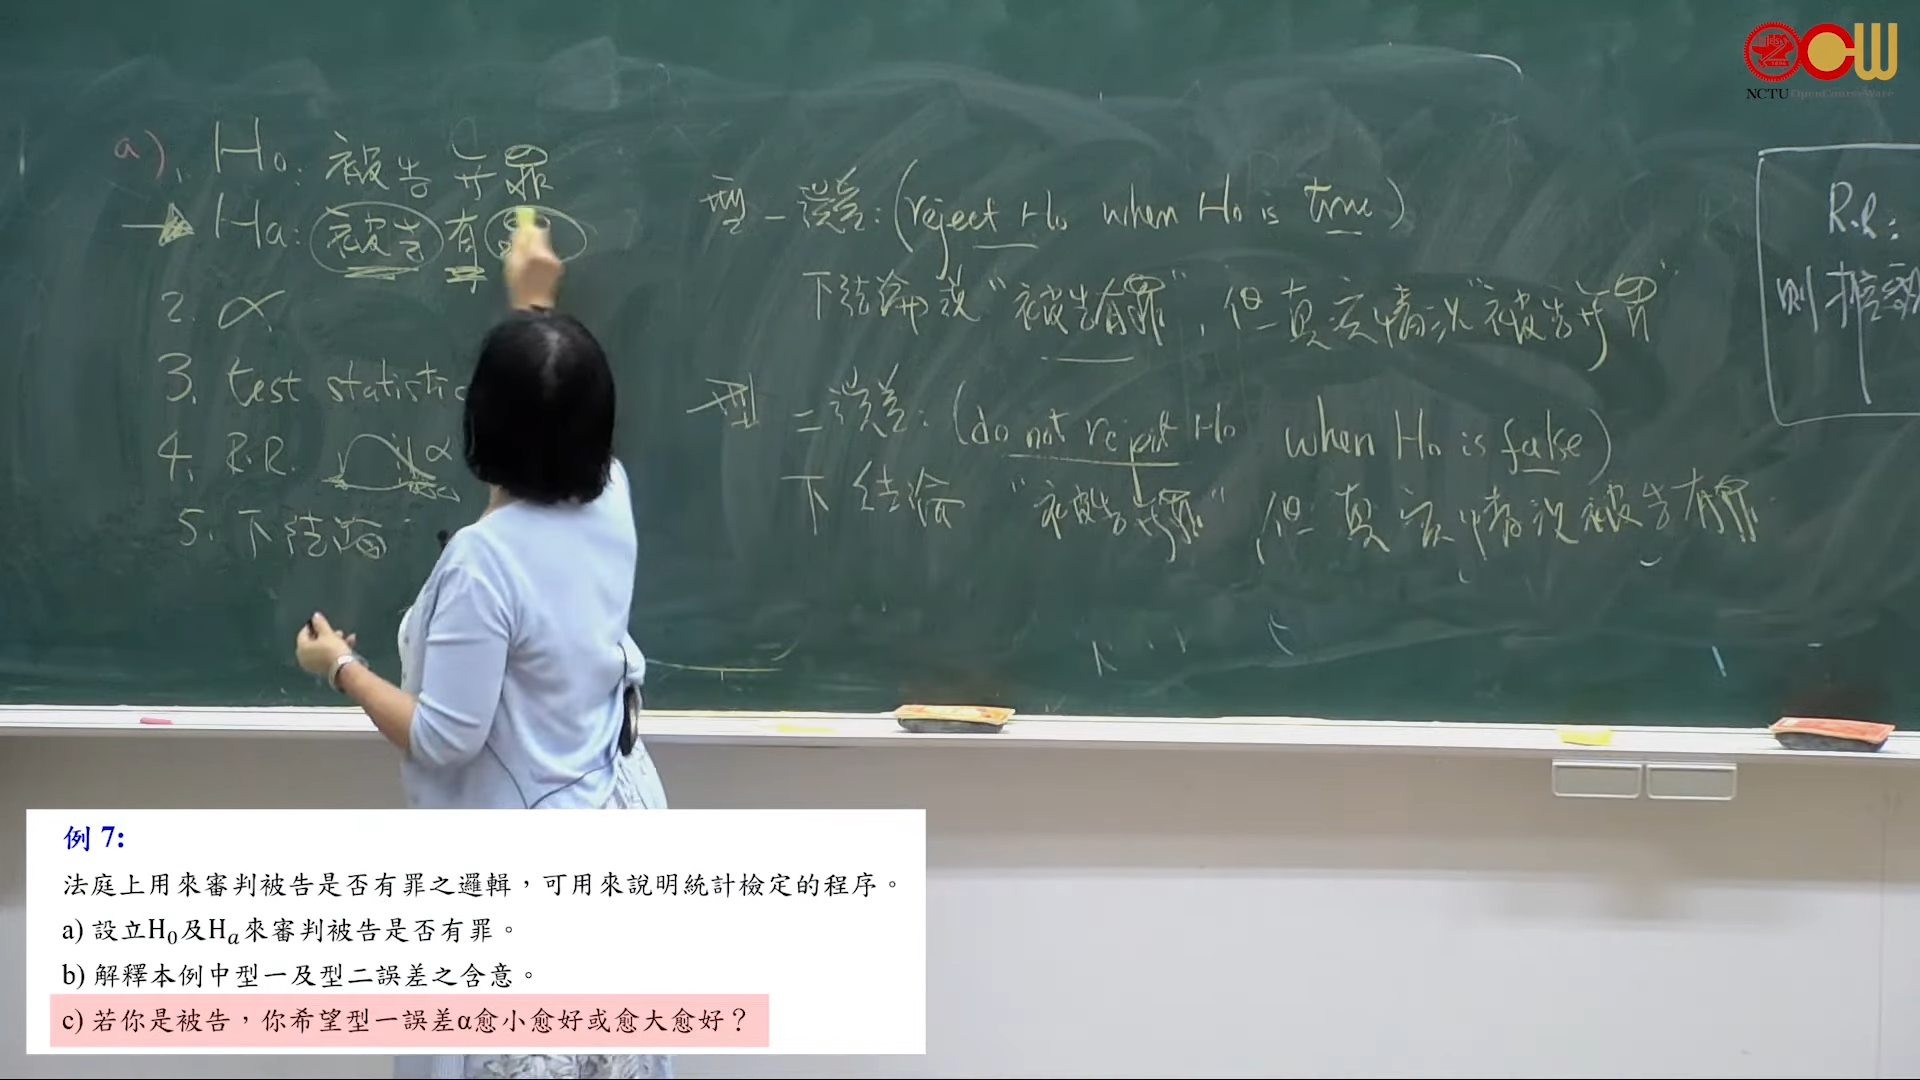 NCTU OpenCourseWare
a) 1. H₀: 被告無罪
Ha: 被告有
2. α
3. test statistic
4. R.R. α
5. 下結論
型一誤差: (reject H₀ when H₀ is true)
下結論說 "被告有罪", 但真實情況 "被告無罪"
型二誤差: (do not reject H₀ when H₀ is false)
下結論 "被告無罪" 但真實情況被告有罪
R.R:
則拒
例 7:
法庭上用來審判被告是否有罪之邏輯，可用來說明統計檢定的程序。
a) 設立H₀及Hₐ來審判被告是否有罪。
b) 解釋本例中型一及型二誤差之含意。
c) 若你是被告，你希望型一誤差α愈小愈好或愈大愈好？